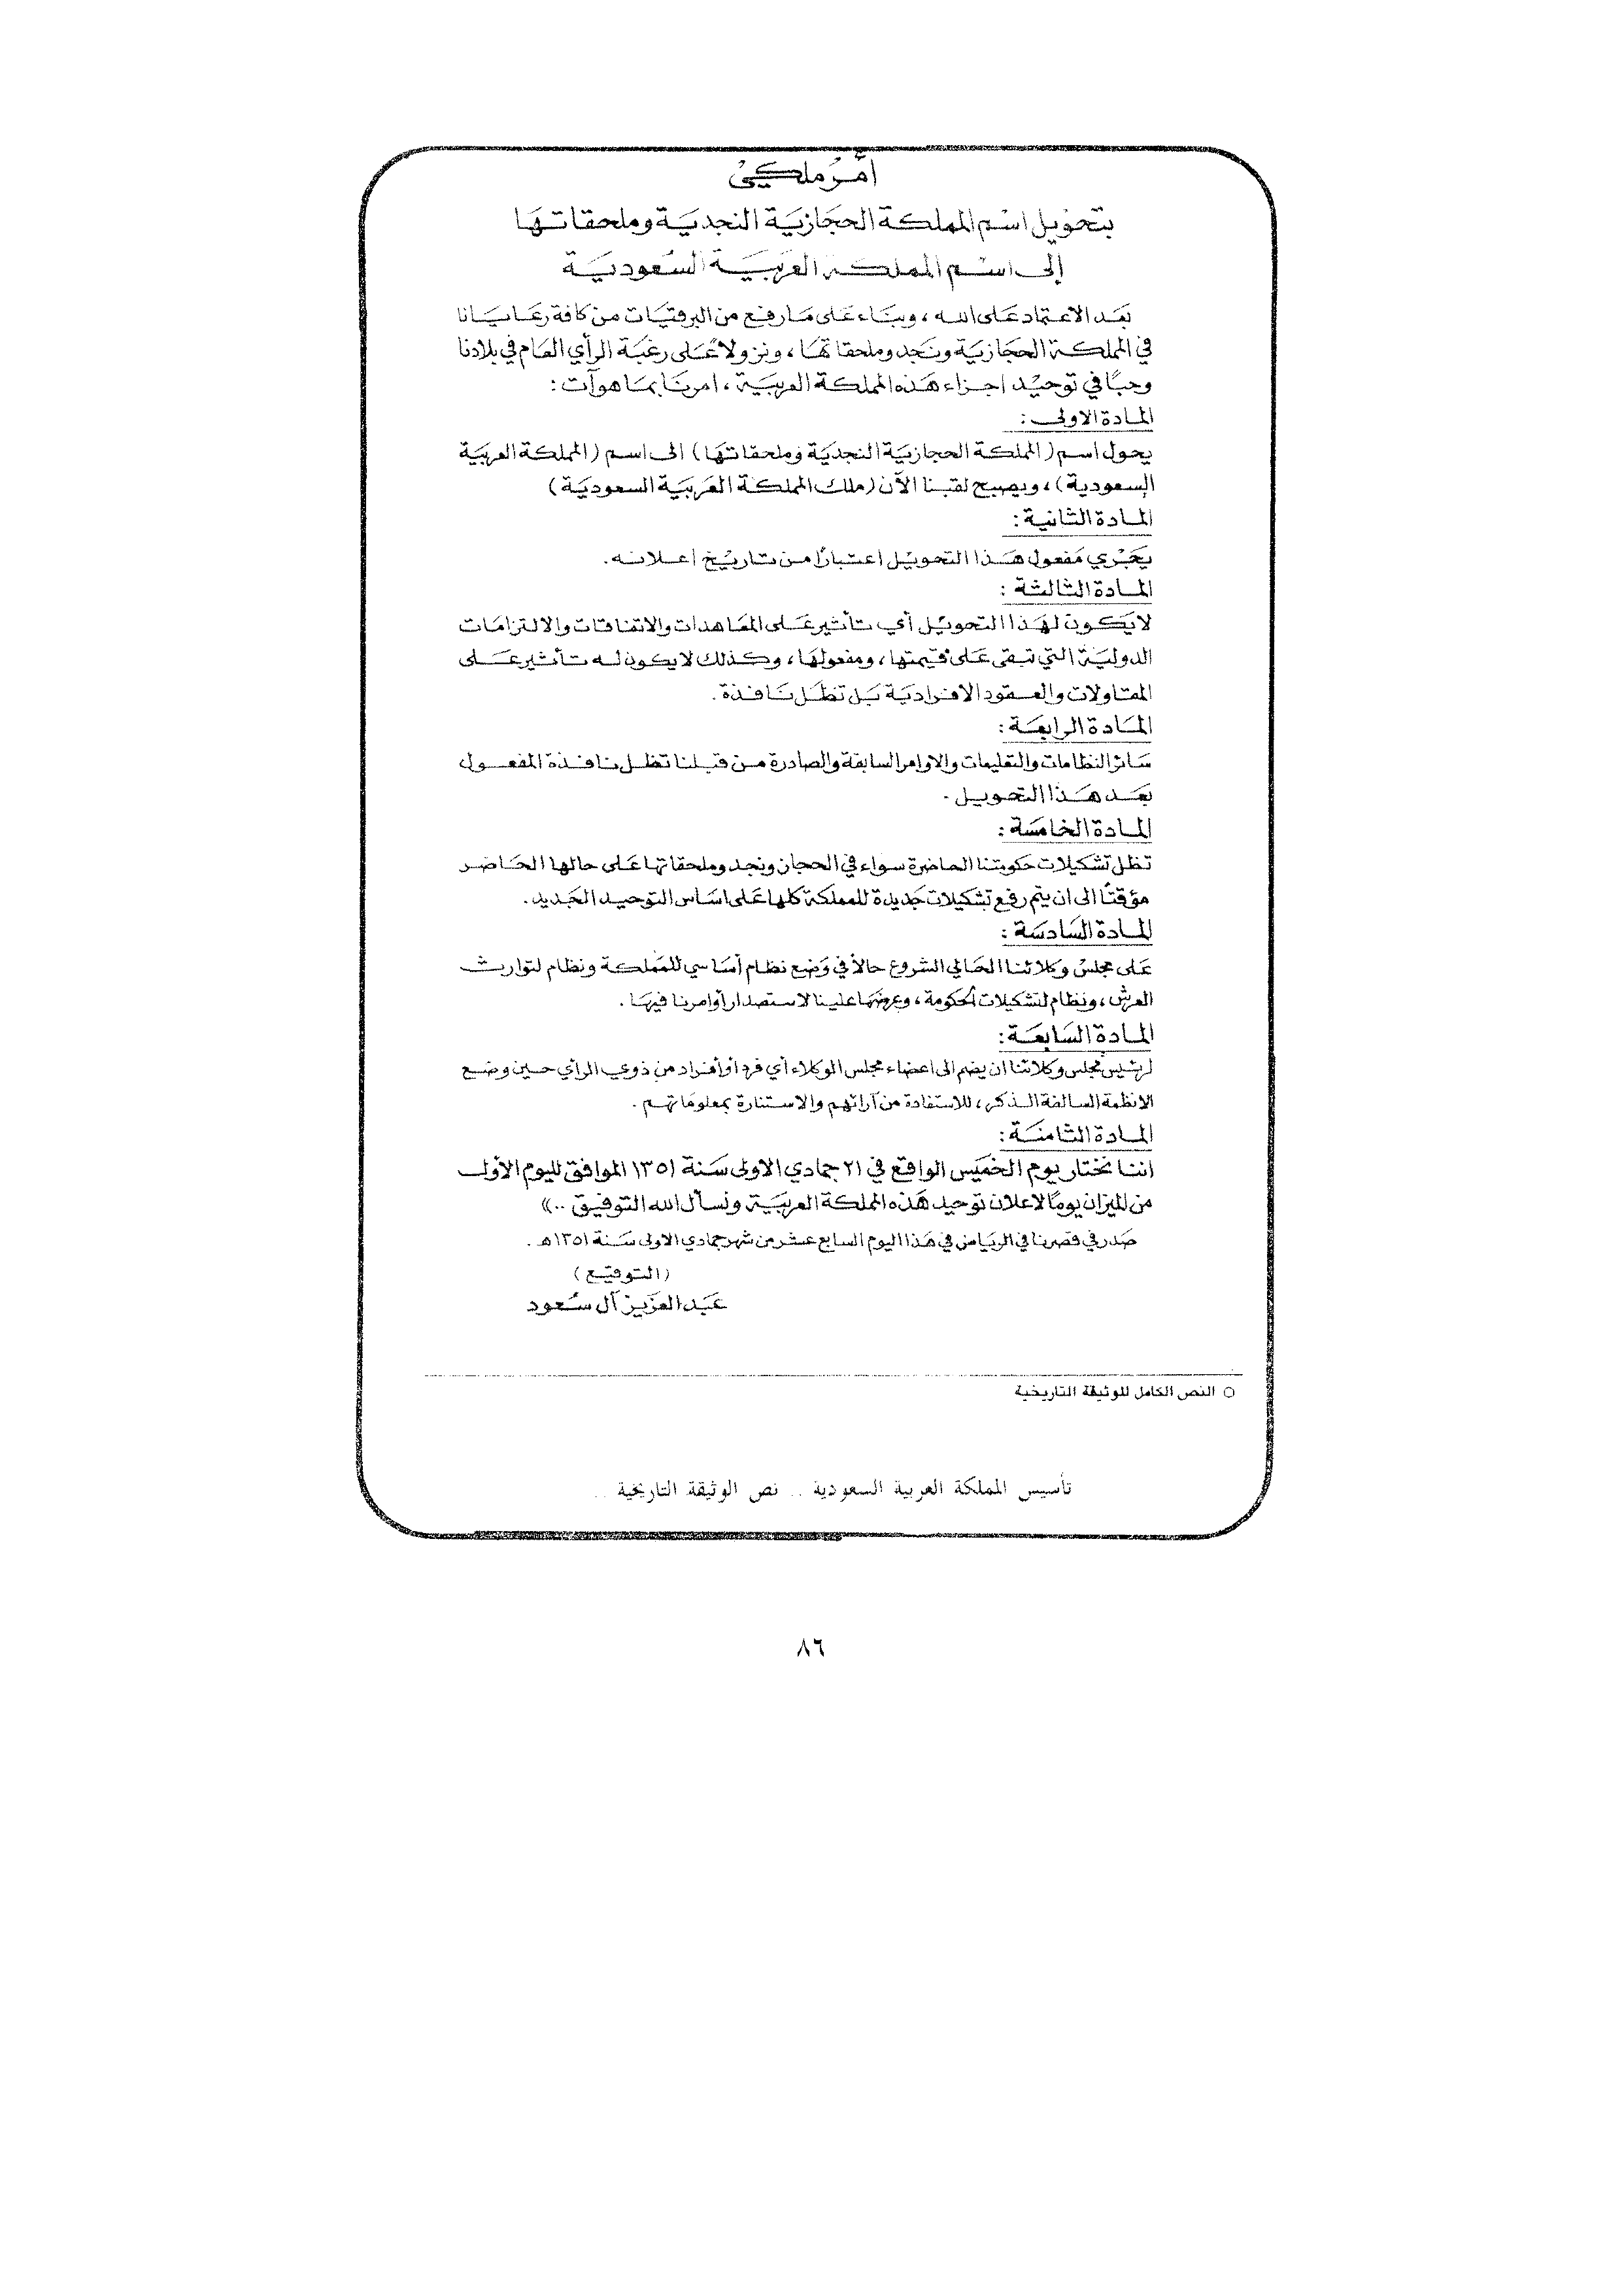 أمر ملكي
بتحويل اسم المملكة الحجازية النجدية وملحقاتها
إلى اسم المملكة العربية السعودية
بعد الاعتماد على الله ، وبناء على ما رفع من البرقيات من كافة رعايانا
في المملكة الحجازية ونجد وملحقاتها ، ونزولاً على رغبة الرأي العام في بلادنا
وحبًا في توحيد اجزاء هذه المملكة العربية ، امرنا بما هوآت :
المادة الاولى :
يحول اسم ( المملكة الحجازية النجدية وملحقاتها ) الى اسم ( المملكة العربية
السعودية ) ، ويصبح لقبنا الآن ( ملك المملكة العربية السعودية )
المادة الثانية :
يجري مفعول هذا التحويل اعتبارًا من تاريخ اعلانه .
المادة الثالثة :
لا يكون لهذا التحويل أي تأثير على المعاهدات والاتفاقات والالتزامات
الدولية التي تبقى على قيمتها ، ومفعولها ، وكذلك لا يكون له تأثير على
المقاولات والعقود الافرادية بل تظل نافذة .
المادة الرابعة :
سائر النظامات والتعليمات والاوامر السابقة والصادرة من قبلنا تظل نافذة المفعول
بعد هذا التحويل .
المادة الخامسة :
تظل تشكيلات حكومتنا الحاضرة سواء في الحجاز ونجد وملحقاتها على حالها الحاضر
مؤقتًا الى ان يتم رفع تشكيلات جديدة للمملكة كلها على اساس التوحيد الجديد .
المادة السادسة :
على مجلس وكلائنا الحالي الشروع حالاً في وضع نظام أساسي للمملكة ونظام لتوارث
العرش ، ونظام لتشكيلات الحكومة ، وعرضها علينا لاستصدار أوامرنا فيها .
المادة السابعة :
لرئيس مجلس وكلائنا ان يضم الى اعضاء مجلس الوكلاء أي فرد أو أفراد من ذوي الرأي حين وضع
الانظمة السالفة الذكر ، للاستفادة من آرائهم والاستنارة بمعلوماتهم .
المادة الثامنة :
اننا نختار يوم الخميس الواقع في ٢١ جمادي الاولى سنة ١٣٥١ الموافق لليوم الأول
من الميزان يومًا لاعلان توحيد هذه المملكة العربية ونسأل الله التوفيق .. »
صدر في قصرنا في الرياض في هذا اليوم السابع عشر من شهر جمادي الاولى سنة ١٣٥١ هـ .
( التوقيع )
عبد العزيز آل سعود
○ النص الكامل للوثيقة التاريخية
تأسيس المملكة العربية السعودية .. نص الوثيقة التاريخية ..
٨٦